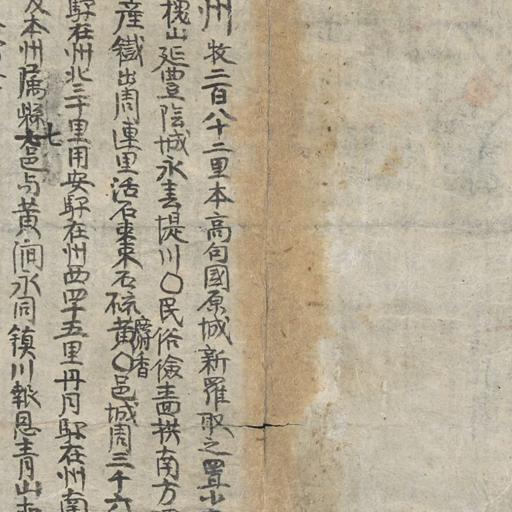 州 牧二百八十二里本高句國原城新羅取之置小
槐山延豊陰城永春堤川〇民俗儉嗇拱南方
産鐵出周連里活石棗東石硫黃麝香〇邑城周三千六
驛在州北三十里用安驛在州西四十五里丹月驛在州南
本州属縣七邑与黃澗永同鎮川報恩青山